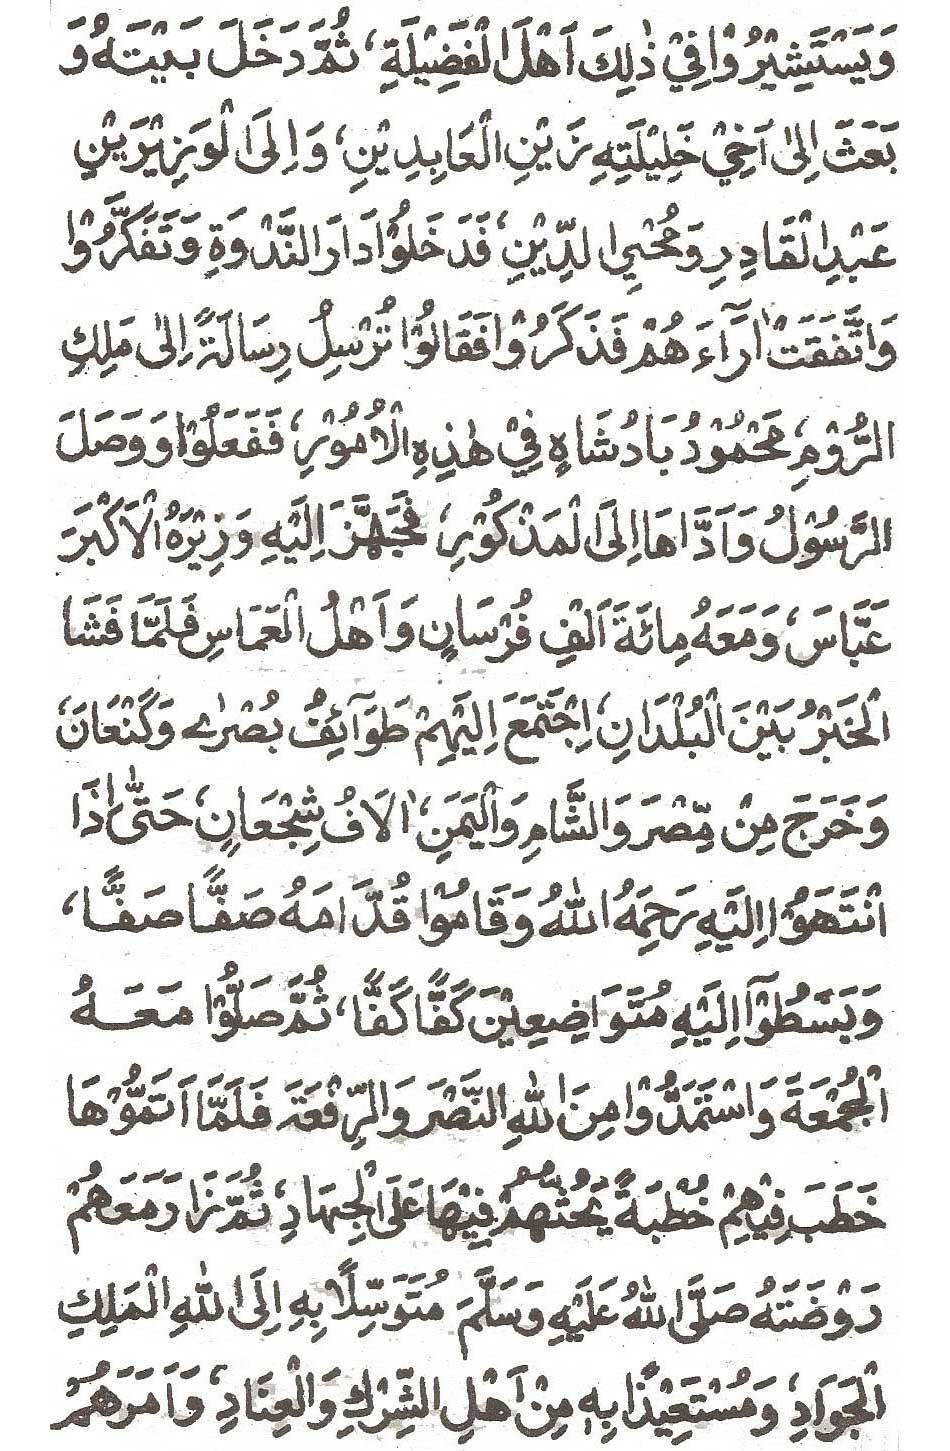 وَيَسْتَشِيْرُوْا فِيْ ذٰلِكَ اَهْلَ الْفَضِيْلَةِ، ثُمَّ دَخَلَ بَيْتَهُ وَ
بَعَثَ اِلٰى اَخِيْ خَلِيْلَتِهِ زَيْنِ الْعَابِدِيْنِ، وَاِلَى الْوَزِيْرَيْنِ
عَبْدِ الْقَادِرِ وَمُحْيِي الدِّيْنِ، فَدَخَلُوْا دَارَ النَّدْوَةِ وَتَفَكَّرُوْا
وَاتَّفَقَتْ اٰرَآءَ هُمْ فَذَكَرُوْا فَقَالُوْا نُرْسِلُ رِسَالَةً اِلٰى مَلِكِ
الرُّوْمِ، مَحْمُوْدُ بَادُشَاهٍ فِيْ هٰذِهِ الْاُمُوْرِ، فَفَعَلُوْا وَوَصَلَ
الرَّسُوْلُ وَاَدَّاهَا اِلَى الْمَذْكُوْرِ، فَجَهَّزَ اِلَيْهِ وَزِيْرَهُ الْاَكْبَرَ
عَبَّاسَ، وَمَعَهُ مِائَةَ اَلْفِ فُرْسَانٍ وَاَهْلُ الْعَمَاسِ فَلَمَّا فَشَا
الْخَبْرُ بَيْنَ الْبُلْدَانِ، اِجْتَمَعَ اِلَيْهِمْ طَوَآئِفُ بُصْرٰے وَكَنْعَانَ،
وَخَرَجَ مِنْ مِّصْرَ وَالشَّامِ وَالْيَمَنِ، اٰلَافُ شِجْعَانٍ، حَتّٰى اِذَا
انْتَهَوْا اِلَيْهِ رَحِمَهُ اللهُ وَقَامُوْا قُدَّامَهُ صَفًّا صَفًّا،
وَبَسَطُوْآ اِلَيْهِ مُتَوَاضِعِيْنَ كَفًّا كَفًّا، ثُمَّ صَلُّوْا مَعَهُ
الْجُمْعَةَ وَاسْتَمَدُّوْا مِنَ اللهِ النَّصْرَ وَالرِّفْعَةَ فَلَمَّا اَتَمُّوْهَا
خَطَبَ فِيْهِمْ خُطْبَةً يَحُثُّهُمْ فِيْهَا عَلَى الْجِهَادِ، ثُمَّ زَارَ مَعَهُمْ
رَوْضَتَهُ صَلَّى اللهُ عَلَيْهِ وَسَلَّمَ مُتَوَسِّلًا بِهِ اِلَى اللهِ الْمَلِكِ
الْجَوَادِ، وَمُسْتَعِيْذًا بِهِ مِنْ اَهْلِ الشِّرْكِ وَالْعِنَادِ، وَاَمَرَهُمْ